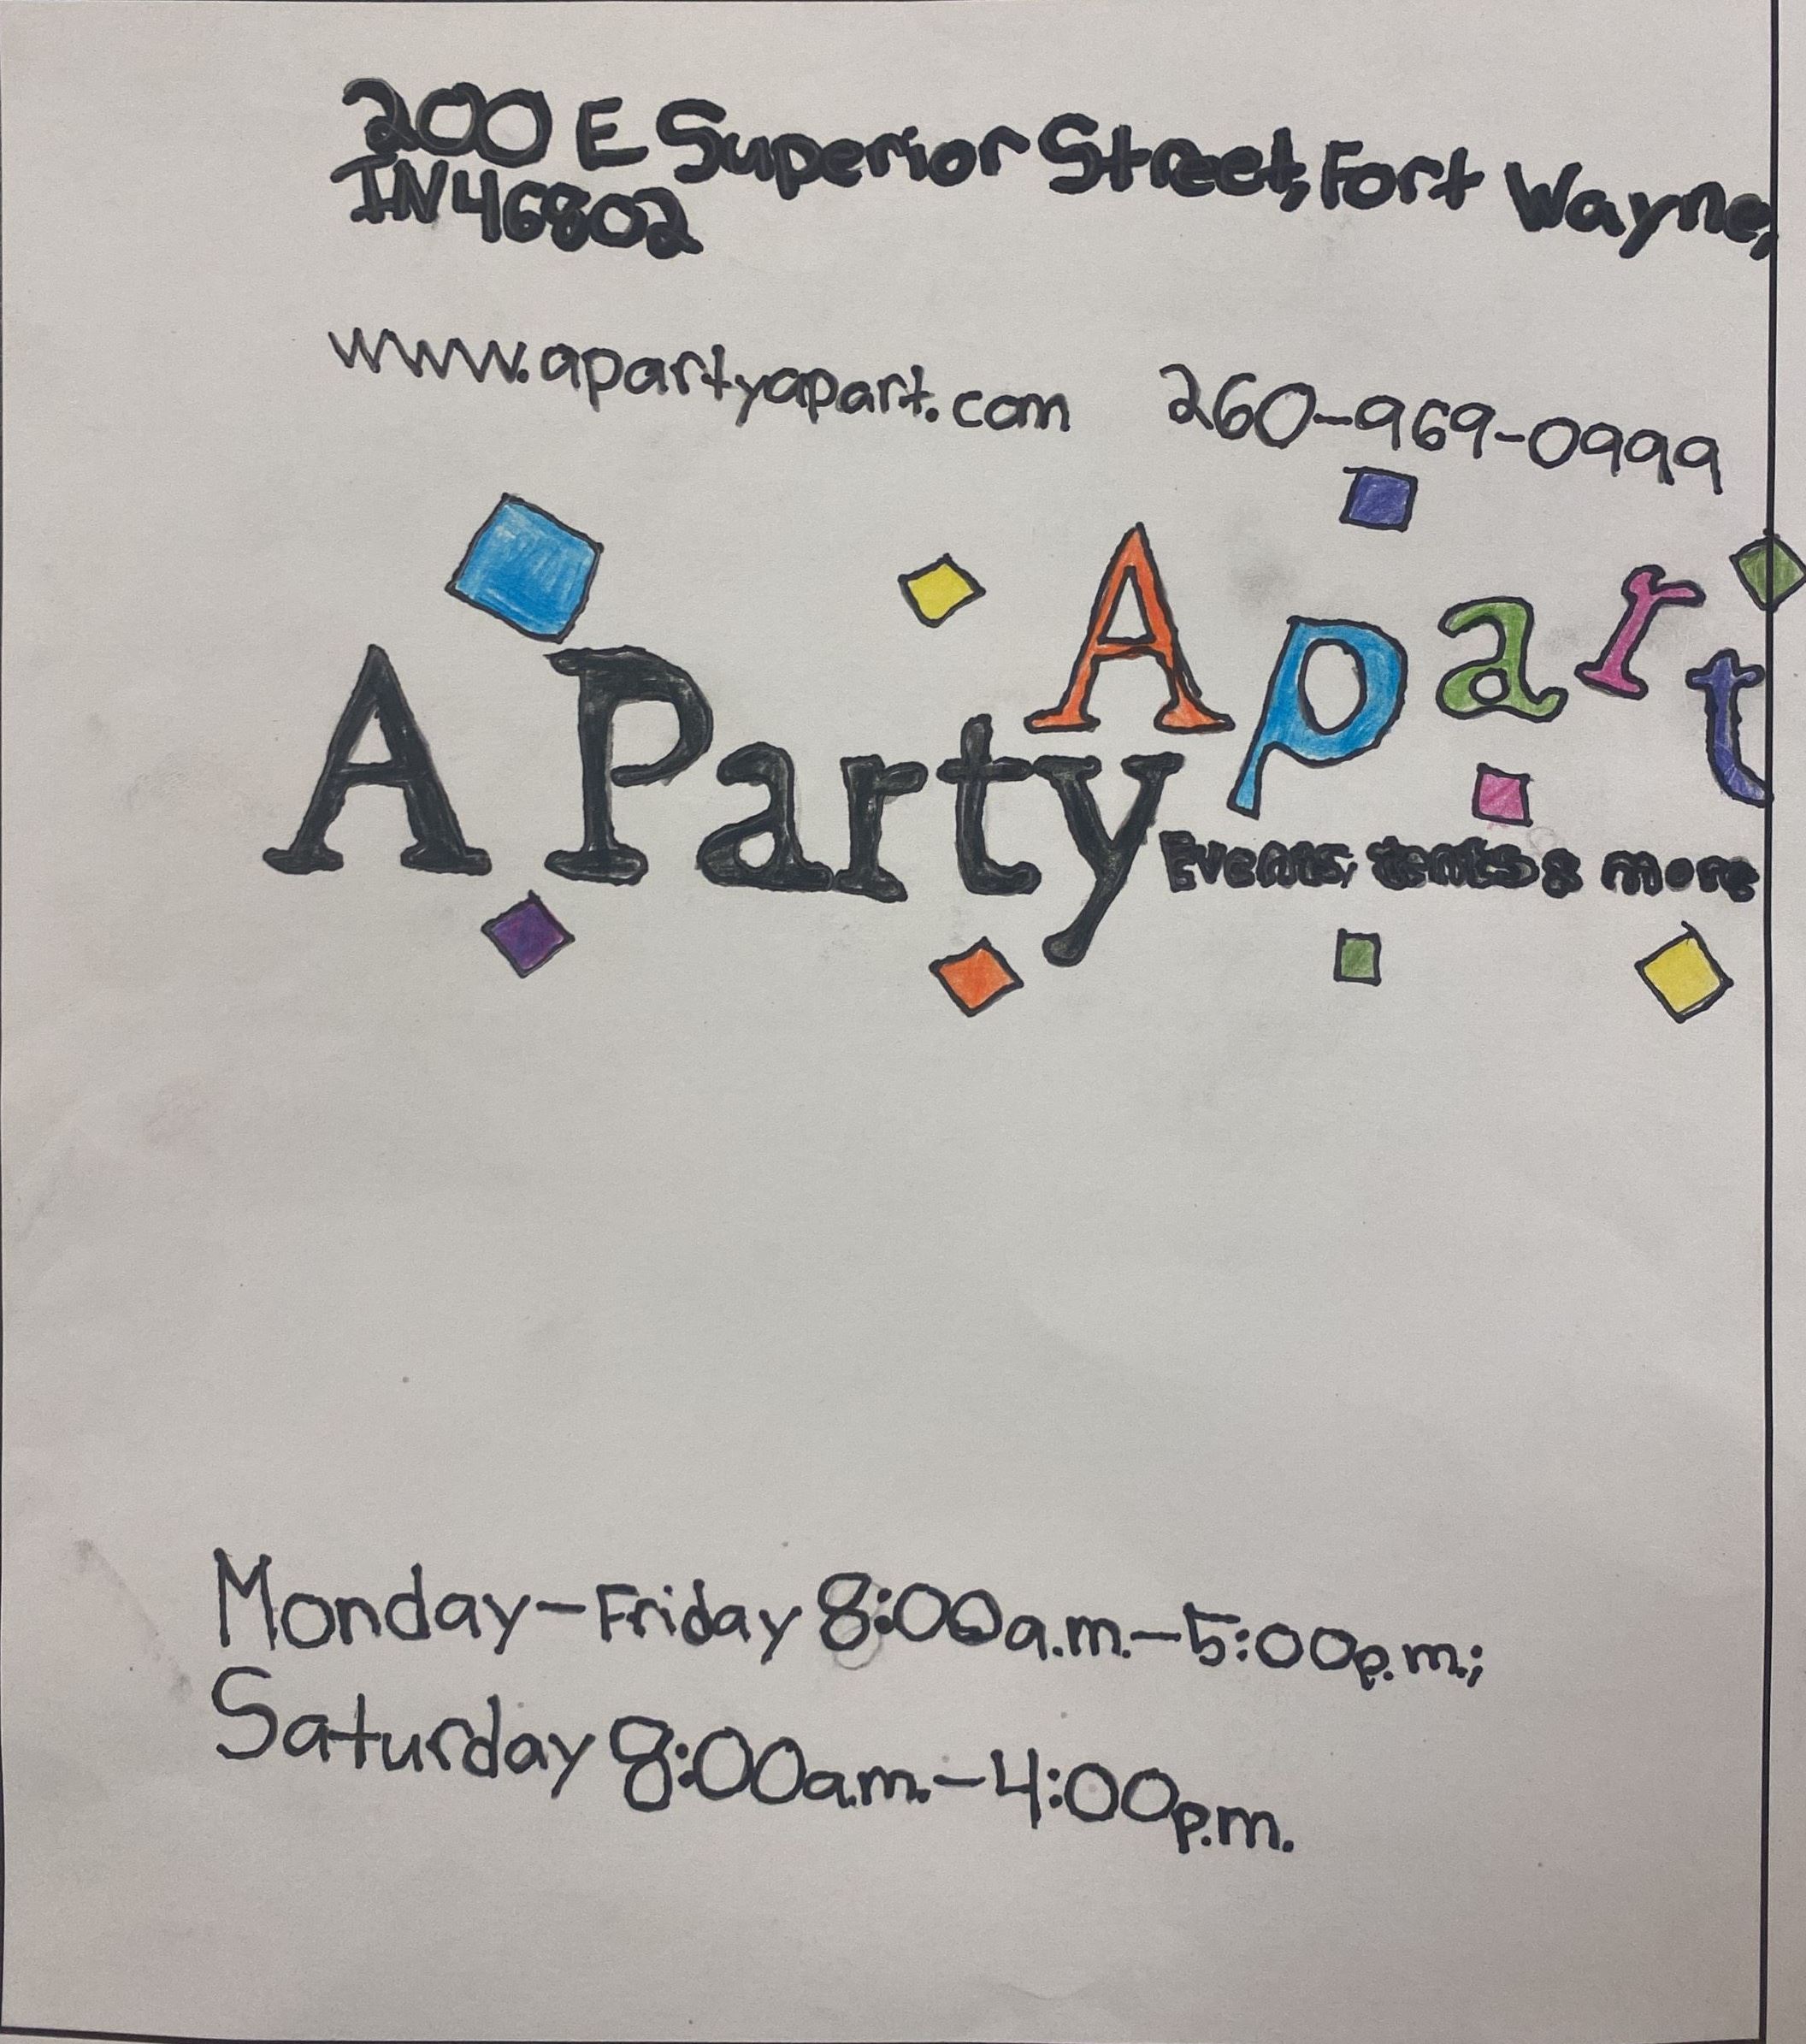 200 E Superior Street, Fort Wayne,
IN 46802
www.apartyapart.com 260-969-0999
A Party Apart
Events, tents & more
Monday-Friday 8:00a.m.-5:00p.m.;
Saturday 8:00a.m.-4:00p.m.